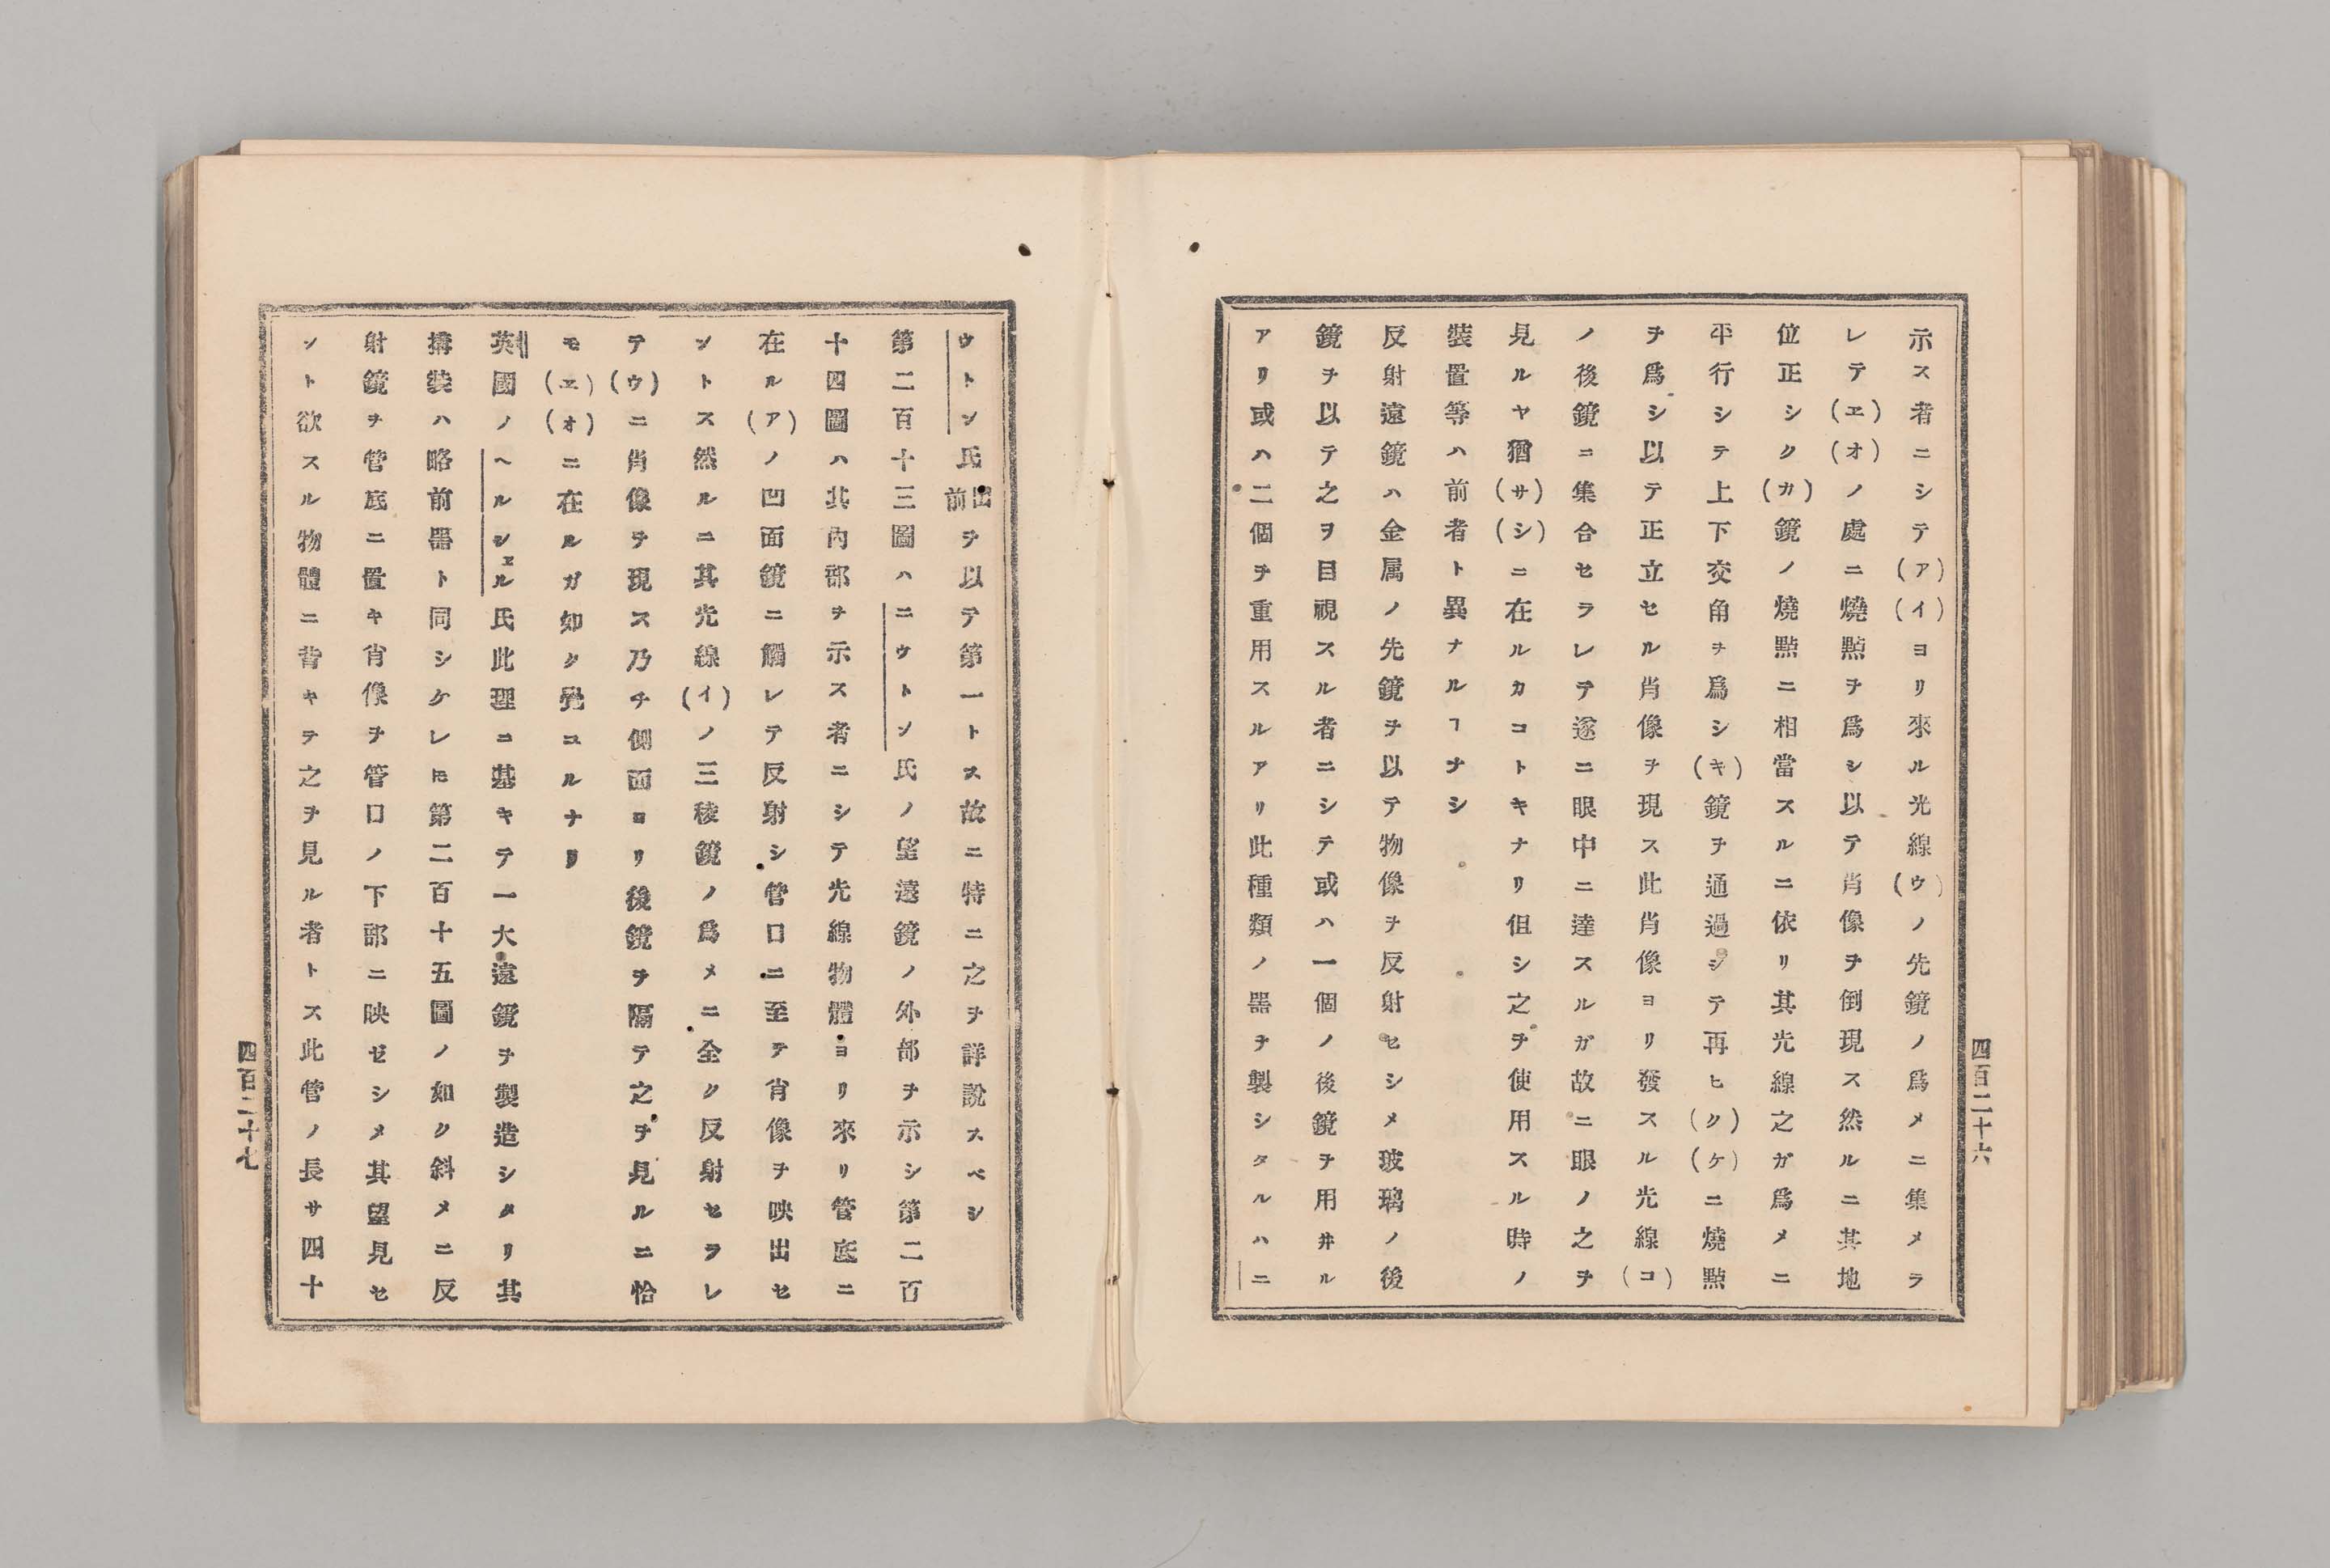 示ス者ニシテ(ア)(イ)ヨリ來ル光線(ウ)ノ先鏡ノ爲メニ集メラ
レテ(ヱ)(オ)ノ處ニ燒點ヲ爲シ以テ肖像ヲ倒現ス然ルニ其地
位正シク(カ)鏡ノ燒點ニ相當スルニ依リ其光線之ガ爲メニ
平行シテ上下交角ヲ爲シ(キ)鏡ヲ通過シテ再ヒ(ク)(ケ)ニ燒點
ヲ爲シ以テ正立セル肖像ヲ現ス此肖像ヨリ發スル光線(コ)
ノ後鏡ニ集合セラレテ遂ニ眼中ニ達スルガ故ニ眼ノ之ヲ
見ルヤ猶(サ)(シ)ニ在ルカコトキナリ但シ之ヲ使用スル時ノ
裝置等ハ前者ト異ナルヿナシ
反射遠鏡ハ金属ノ先鏡ヲ以テ物像ヲ反射セシメ玻璃ノ後
鏡ヲ以テ之ヲ目視スル者ニシテ或ハ一個ノ後鏡ヲ用井ル
アリ或ハ二個ヲ重用スルアリ此種類ノ器ヲ製シタルハニ
四百二十六
ウトン氏前出ヲ以テ第一トス故ニ特ニ之ヲ詳說スベシ
第二百十三圖ハニウトン氏ノ望遠鏡ノ外部ヲ示シ第二百
十四圖ハ其內部ヲ示ス者ニシテ光線物體ヨリ來リ管底ニ
在ル(ア)ノ凹面鏡ニ觸レテ反射シ管口ニ至テ肖像ヲ映出セ
ントス然ルニ其光線(イ)ノ三稜鏡ノ爲メニ全ク反射セラレ
テ(ウ)ニ肖像ヲ現ス乃チ側面ヨリ後鏡ヲ隔テ之ヲ見ルニ恰
モ(ヱ)(オ)ニ在ルガ如ク覺ユルナリ
英國ノヘルシヱル氏此理ニ基キテ一大遠鏡ヲ製造シタリ其
搆裝ハ略前器ト同シケレ𪜈第二百十五圖ノ如ク斜メニ反
射鏡ヲ管底ニ置キ肖像ヲ管口ノ下部ニ映ゼシメ其望見セ
ント欲スル物體ニ背キテ之ヲ見ル者トス此管ノ長サ四十
四百二十七